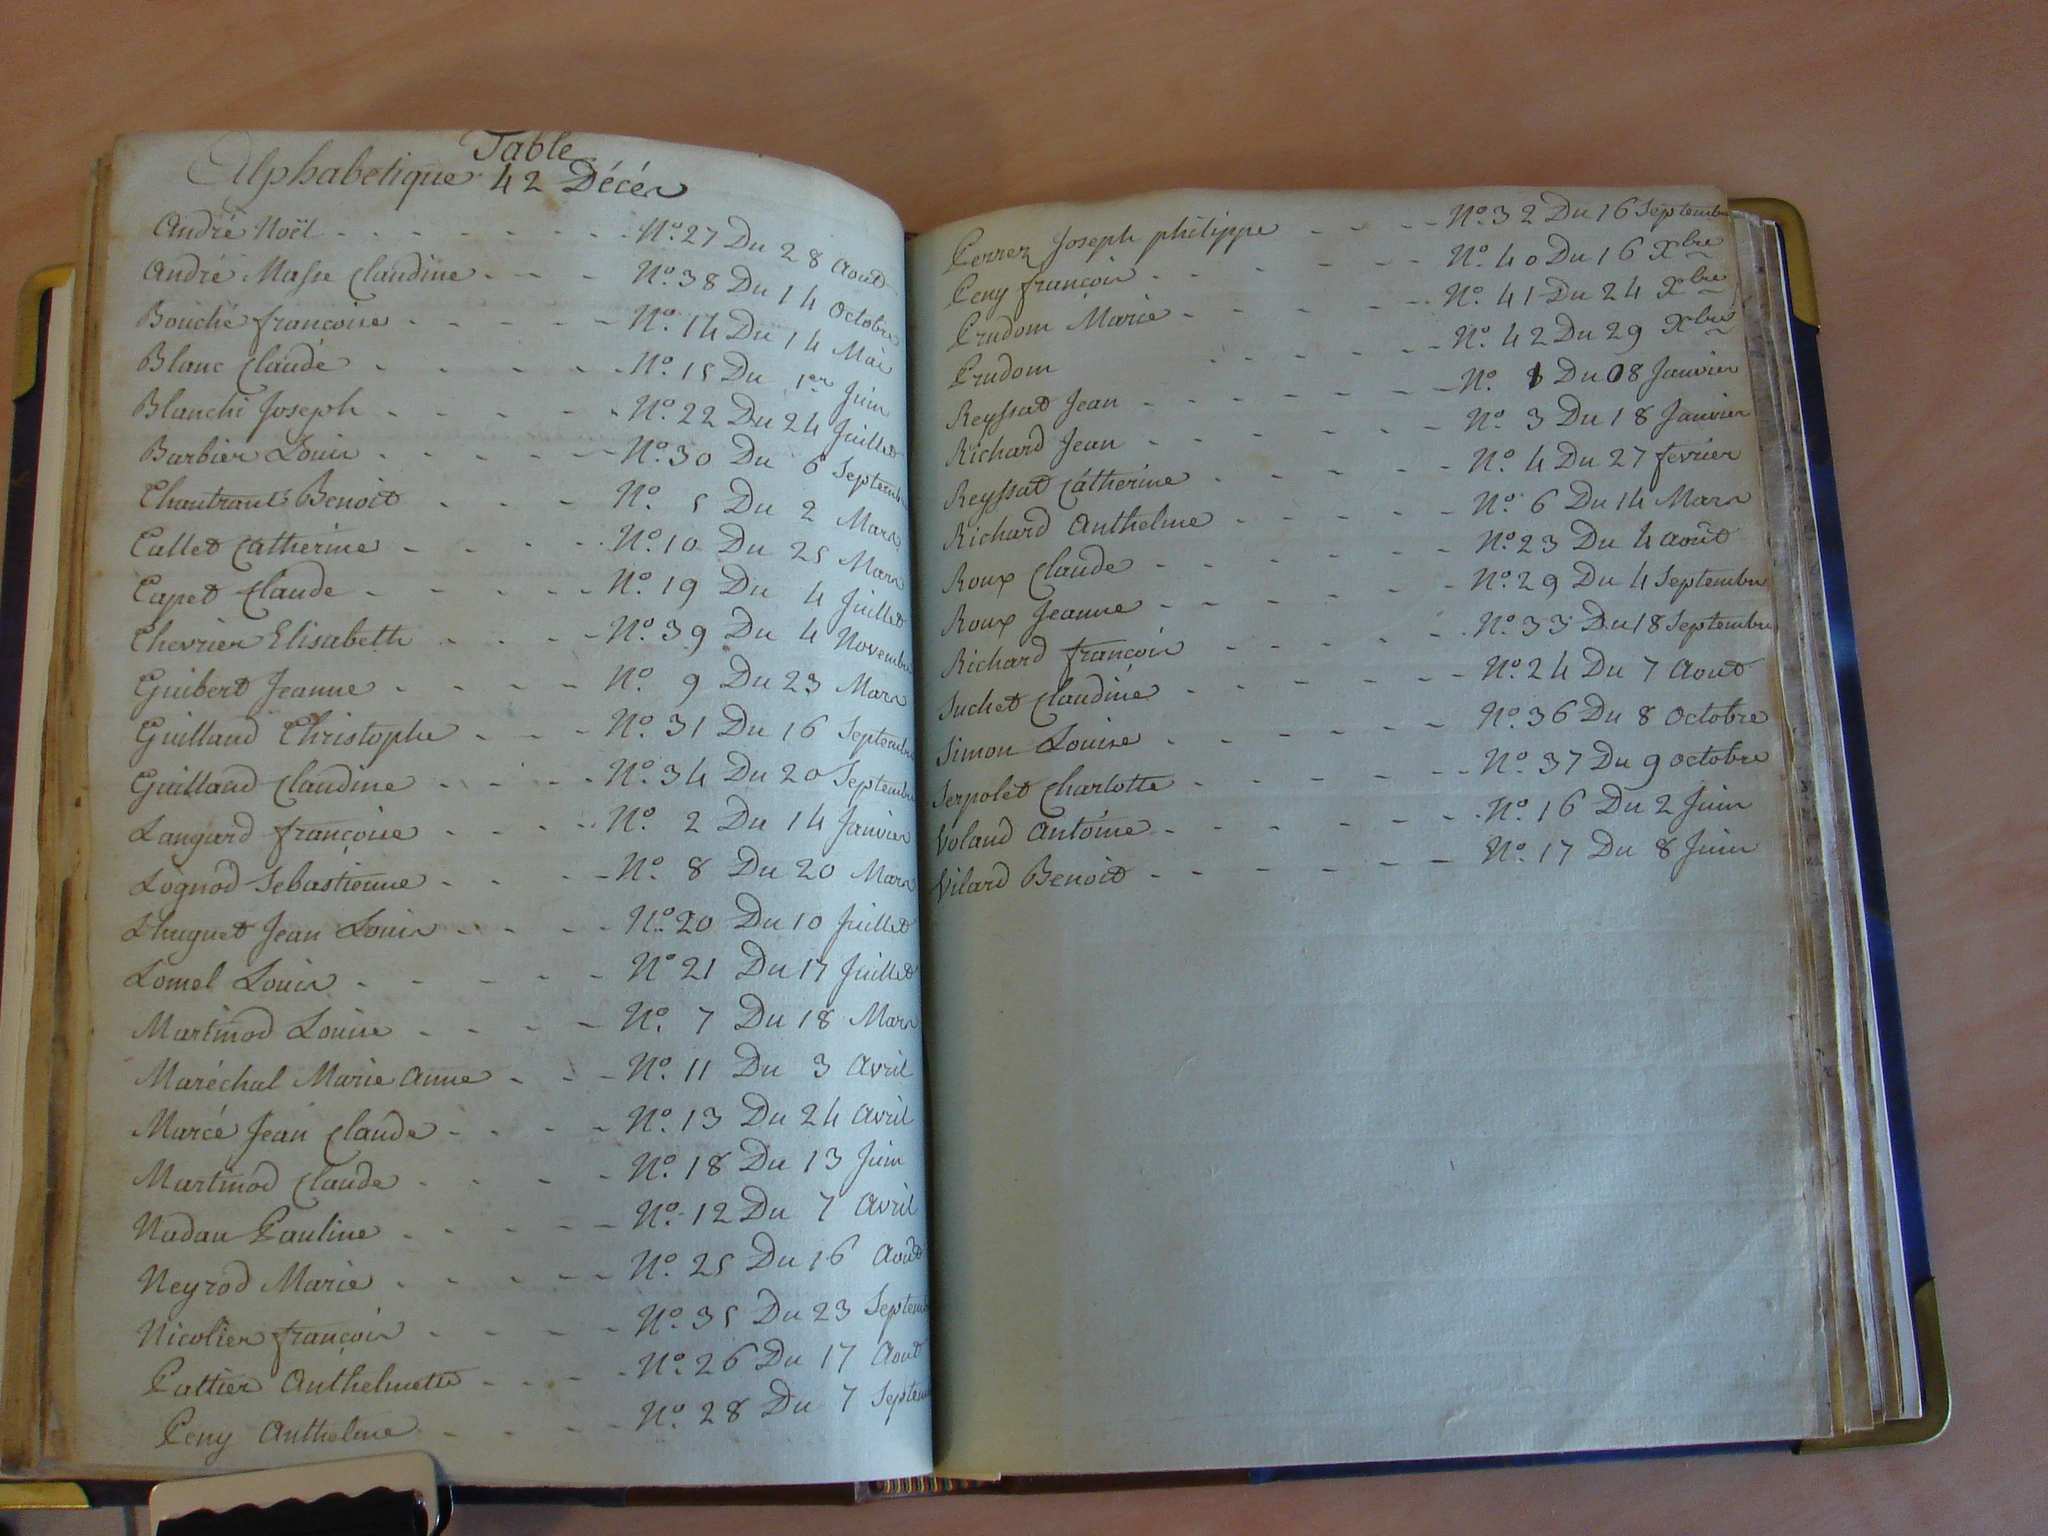 Table
Alphabetique 42 Décés
André Noël - - - - - - - - N.º 27 Du 28 Aout
André Masse Claudine - - - N.º 38 Du 14 Octobre
Bouché françoise - - - - - N.º 14 Du 14 Mai
Blanc Claude - - - - - N.º 15 Du 1er Juin
Blanchi Joseph - - - - - N.º 22 Du 24 Juillet
Barbier Louis - - - - - N.º 30 Du 6 Septembre
Chautrant Benoit - - - N.º 5 Du 2 Mars
Callet Catherine - - - - N.º 10 Du 25 Mars
Capet Claude - - - - - N.º 19 Du 4 Juillet
Chevrier Elisabeth - - - - N.º 39 Du 4 Novembre
Guibert Jeanne - - - - N.º 9 Du 23 Mars
Guilland Christophe - - - N.º 31 Du 16 Septembre
Guilland Claudine - - - - N.º 34 Du 20 Septembre
Langard françoise - - - - N.º 2 Du 14 Janvier
Lognod Sebastienne - - - - N.º 8 Du 20 Mars
Lhuguet Jean Louis - - - - N.º 20 Du 10 Juillet
Lomel Louis - - - - - N.º 21 Du 17 Juillet
Martinod Louise - - - - N.º 7 Du 18 Mars
Maréchal Marie Anne - - - N.º 11 Du 3 Avril
Marcé Jean Claude - - - - N.º 13 Du 24 Avril
Martinod Claude - - - - N.º 18 Du 13 Juin
Nadau Pauline - - - - - N.º 12 Du 7 Avril
Neyrod Marie - - - - - N.º 25 Du 16 Aout
Nicolier françois - - - - N.º 35 Du 23 Septemb
Pattier Anthelmette - - - - N.º 26 Du 17 Aout
Peny Anthelme - - - - N.º 28 Du 7 Septem
Perrez Joseph philippe - - - - N.º 32 Du 16 Septembre
Peny françois - - - - - - N.º 40 Du 16 Xbre
Prudom Marie - - - - - - N.º 41 Du 24 Xbre
Prudom - - - - - N.º 42 Du 29 Xbre
Reyssat Jean - - - - - - N.º 1 Du 08 Janvier
Richard Jean - - - - - - N.º 3 Du 18 Janvier
Reyssat Catherine - - - - - N.º 4 Du 27 fevrier
Richard Anthelme - - - - - N.º 6 Du 14 Mars
Roux Claude - - - - - - N.º 23 Du 4 août
Roux Jeanne - - - - - - N.º 29 Du 4 Septembre
Richard françois - - - - - N.º 33 Du 18 Septembre
Suchet Claudine - - - - - - N.º 24 Du 7 Aout
Simon Louise - - - - - - N.º 36 Du 8 Octobre
Serpolet Charlotte - - - - - - N.º 37 Du 9 octobre
Voland Antoine - - - - - - N.º 16 Du 2 Juin
Vilard Benoit - - - - - - N.º 17 Du 8 Juin